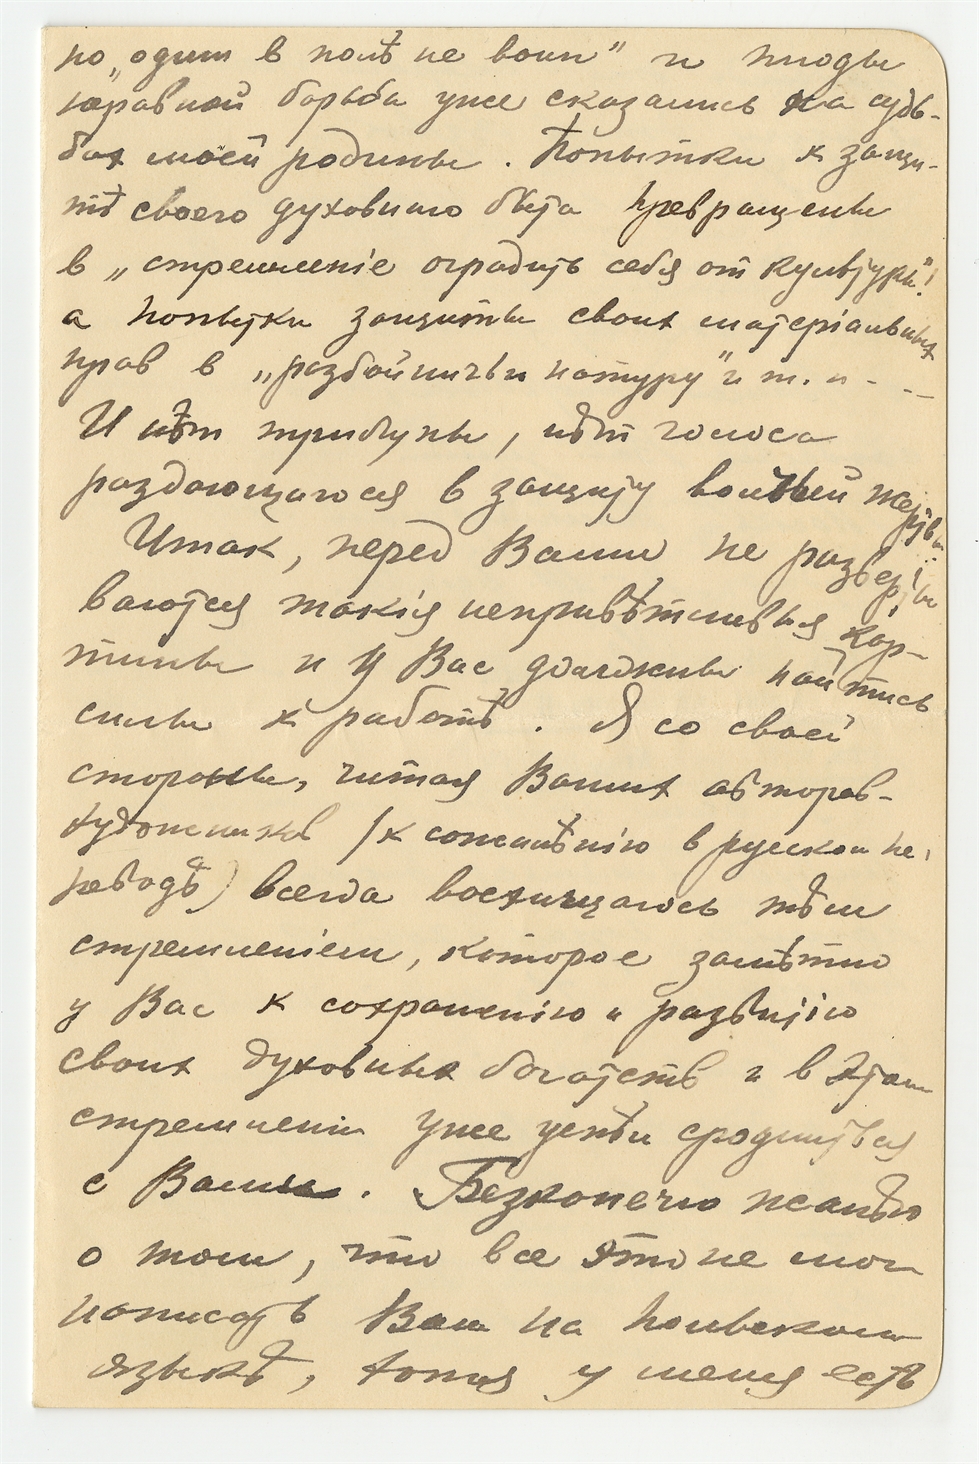 но „один в полѣ не воин" и плоды
неравной борьбы уже сказались на судь-
бах моей родины. Попытки к защи-
тѣ своего духовнаго быта превращены
в „стремленіе оградить себя от культуры"!
а попытки защиты своих матеріальных
прав в „разбойничьи натуру" и т. п - - -
И нѣт трибуны, нѣт голоса
раздающагося в защиту жертвы..
Итак, перед Вами не разверты-
ваются такія непривѣтливыя кар-
тины и у Вас должны найтись
силы к работѣ. Я со своей
стороны, читая Ваших авторов-
художников (к сожалѣнію в русском пе-
реводѣ) всегда восхищаюсь тѣм
стремленіем, которое замѣтно
у Вас к сохраненію и развитію
своих духовных богатств и в этом
стремленіи уже успѣл сродниться
с Вами. Безконечно жалѣю
о том, что все это не могу
написать Вам на польском
языкѣ, хотя у меня есть